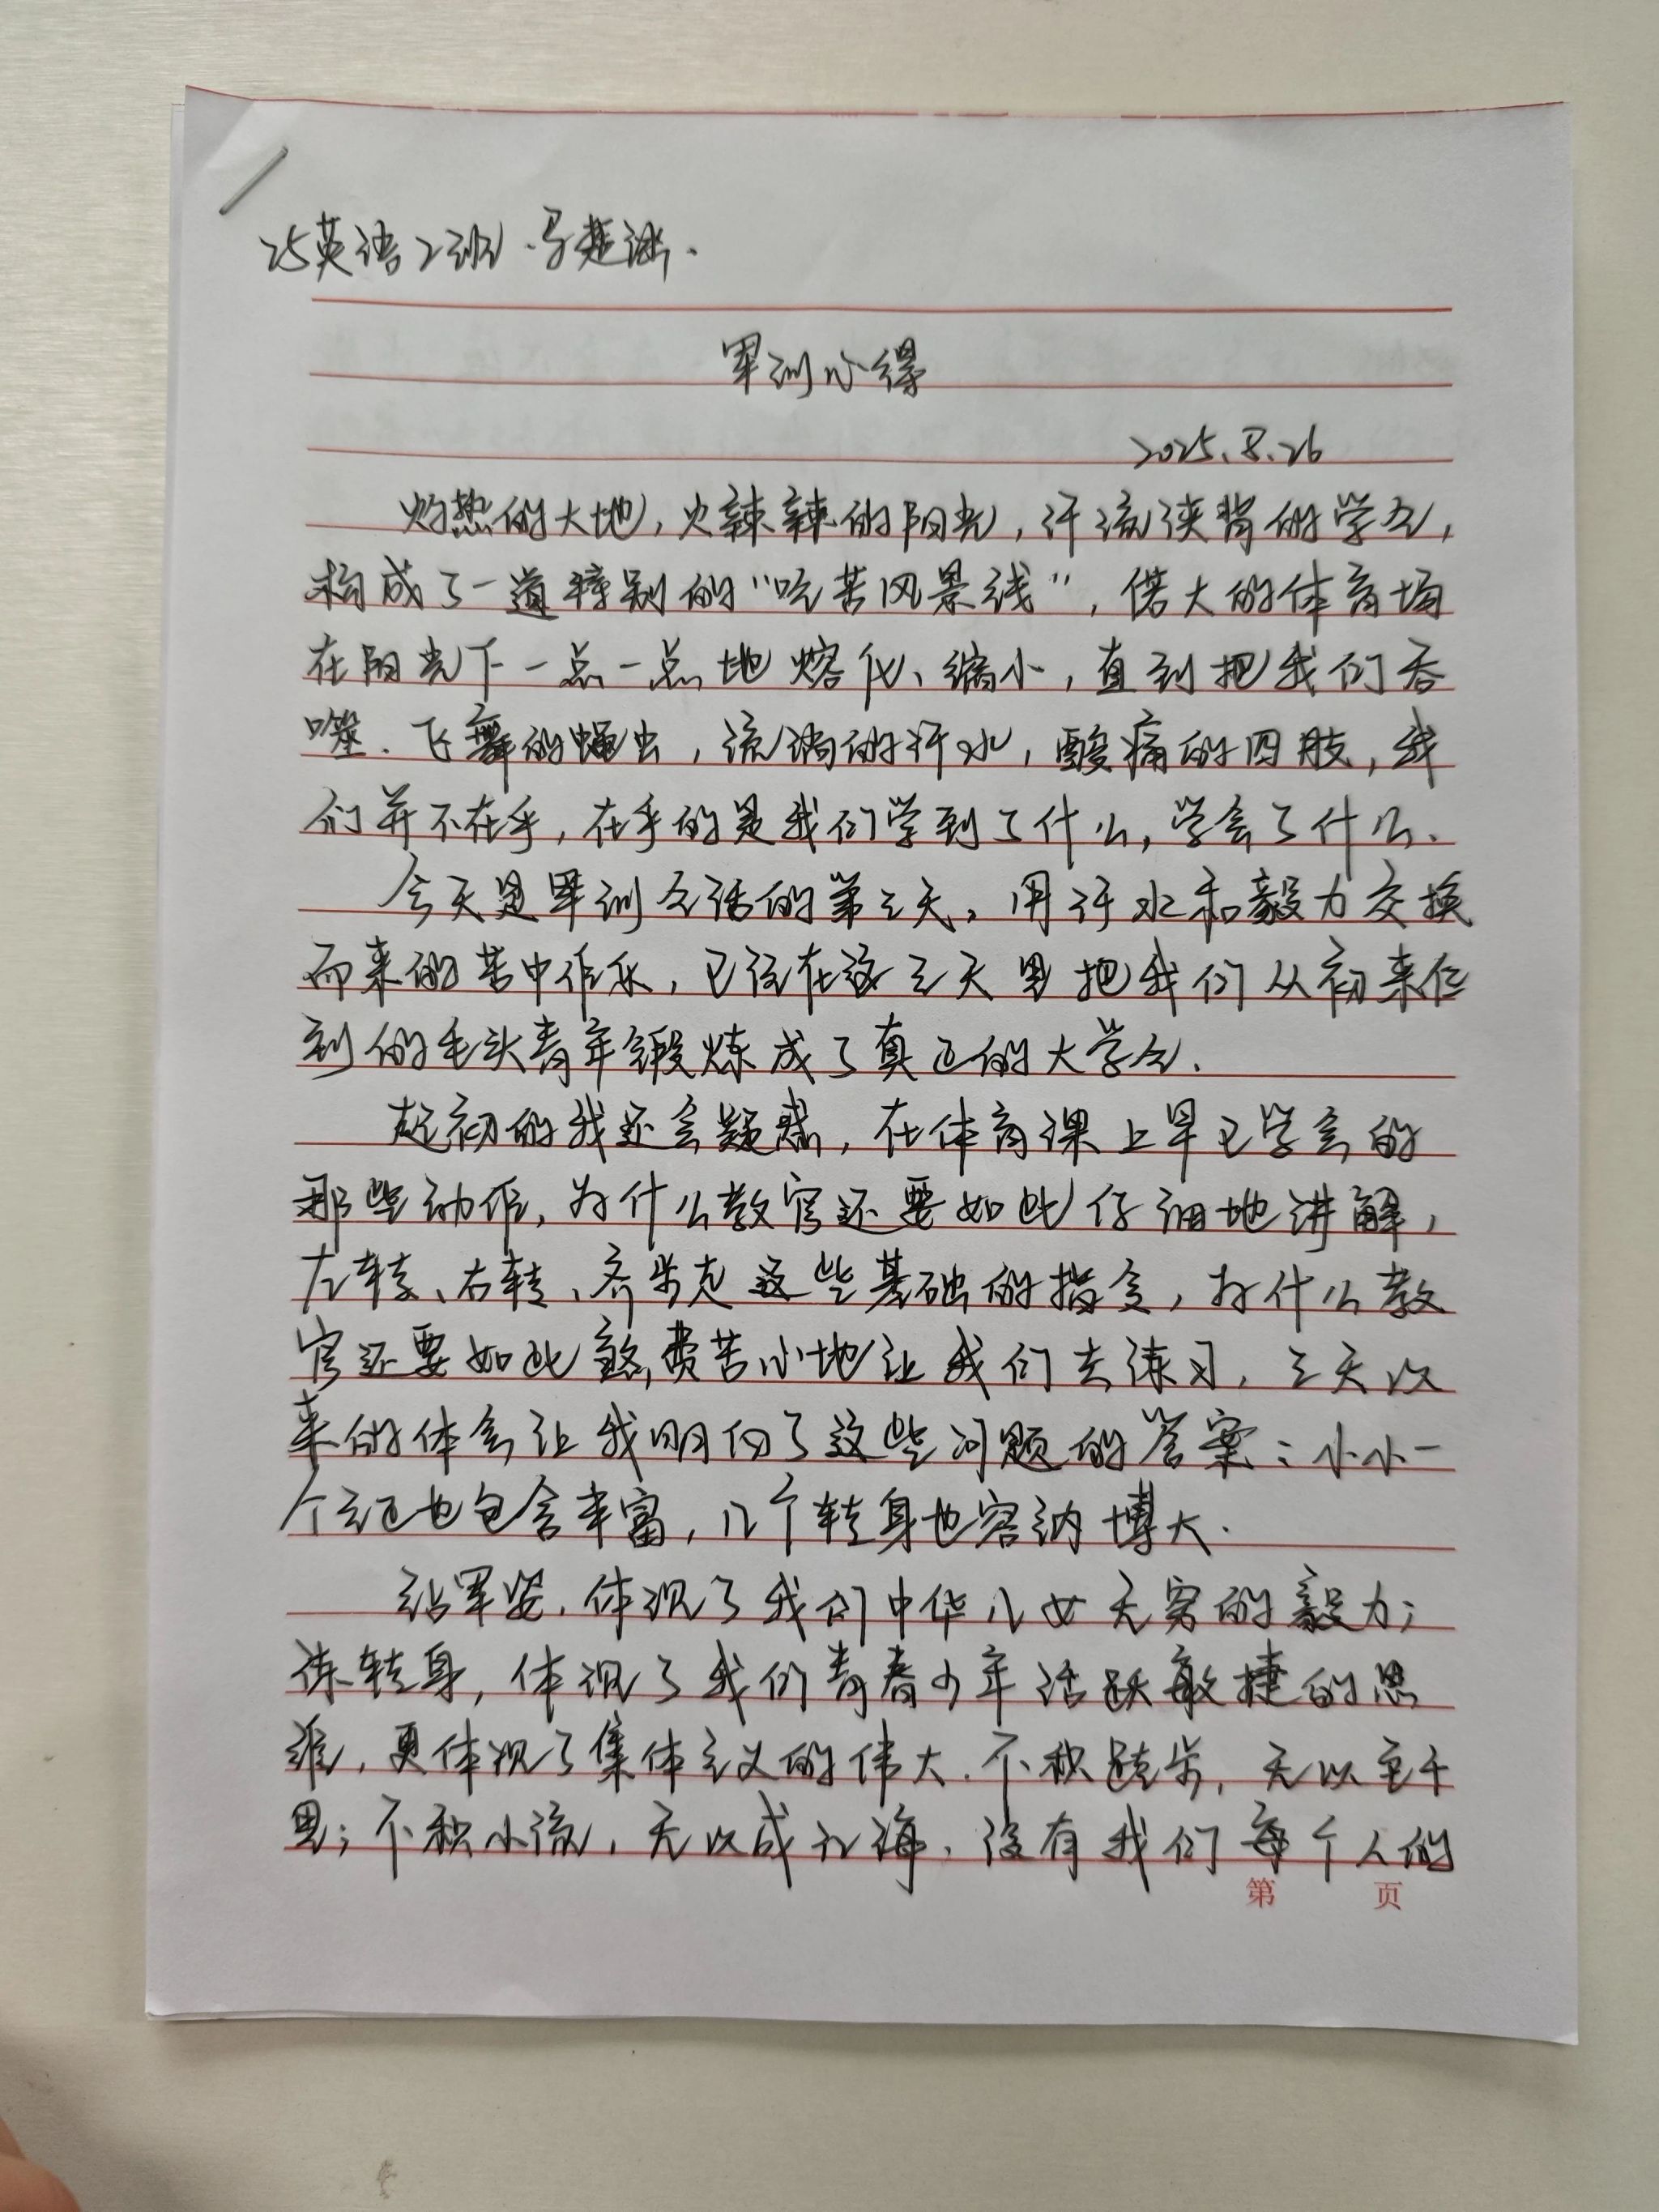 25英语2班.马楚涵.
军训心得
2025.8.26
灼热的大地,火辣辣的阳光,汗流浃背的学生,
构成了一道特别的“吃苦风景线”,偌大的体育场
在阳光下一点一点地熔化、缩小,直到把我们吞
噬.飞舞的蝇虫,流淌的汗水,酸痛的四肢,我
们并不在乎,在乎的是我们学到了什么,学会了什么.
今天是军训生活的第三天,用汗水和毅力交换
而来的苦中作乐,已经在这三天里把我们从初来任
到的毛头青年锻炼成了真正的大学生.
起初的我还会疑惑,在体育课上早已学会的
那些动作,为什么教官还要如此仔细地讲解,
左转、右转、齐步走这些基础的指令,为什么教
官还要如此煞费苦心地让我们去练习,三天以
来的体会让我明白了这些问题的答案:小小一
个立正也包含丰富,几个转身也容纳博大.
站军姿,体现了我们中华儿女无穷的毅力;
练转身,体现了我们青春少年活跃敏捷的思
维,更体现了集体主义的伟大.不积跬步,无以至千
里;不积小流,无以成江海.没有我们每个人的
第 页